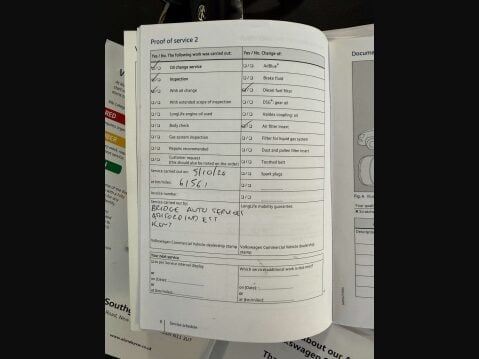 Proof of service 2
Yes / No. The following work was carried out:
Yes / No. Change of:
Oil change service
AdBlue®
Inspection
Brake fluid
With oil change
Diesel fuel filter
With extended scope of inspection
DSG® gear oil
LongLife engine oil used
Haldex coupling: oil
Body check
Air filter insert
Gas system inspection
Filter for liquid gas system
Repairs recommended
Dust and pollen filter insert
Customer request
(this should also be noted on the order)
Toothed belt
Spark plugs
Service carried out on: 5/10/20
at km/miles: 61561
Invoice number:
Service carried out by:
LongLife mobility guarantee:
BRIDGE AUTO SERVICES
IND EST
KENT
Volkswagen Commercial Vehicle dealership stamp
Volkswagen Commercial Vehicle dealership
stamp
Your next service
as per Service interval display
Which service/additional work is that next?
or
on (Date):
or
at (km/miles):
or
on (Date):
or
at (km/miles):
8 Service schedule
Docume
RED
South
about our A